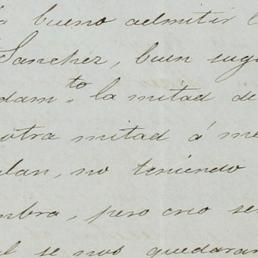 la bueno admitir l
Sanchez, buen suge
dam.to la mitad de
otra mitad á me
lan, no teniendo
mbra, pero creo se
el se nos quedaran